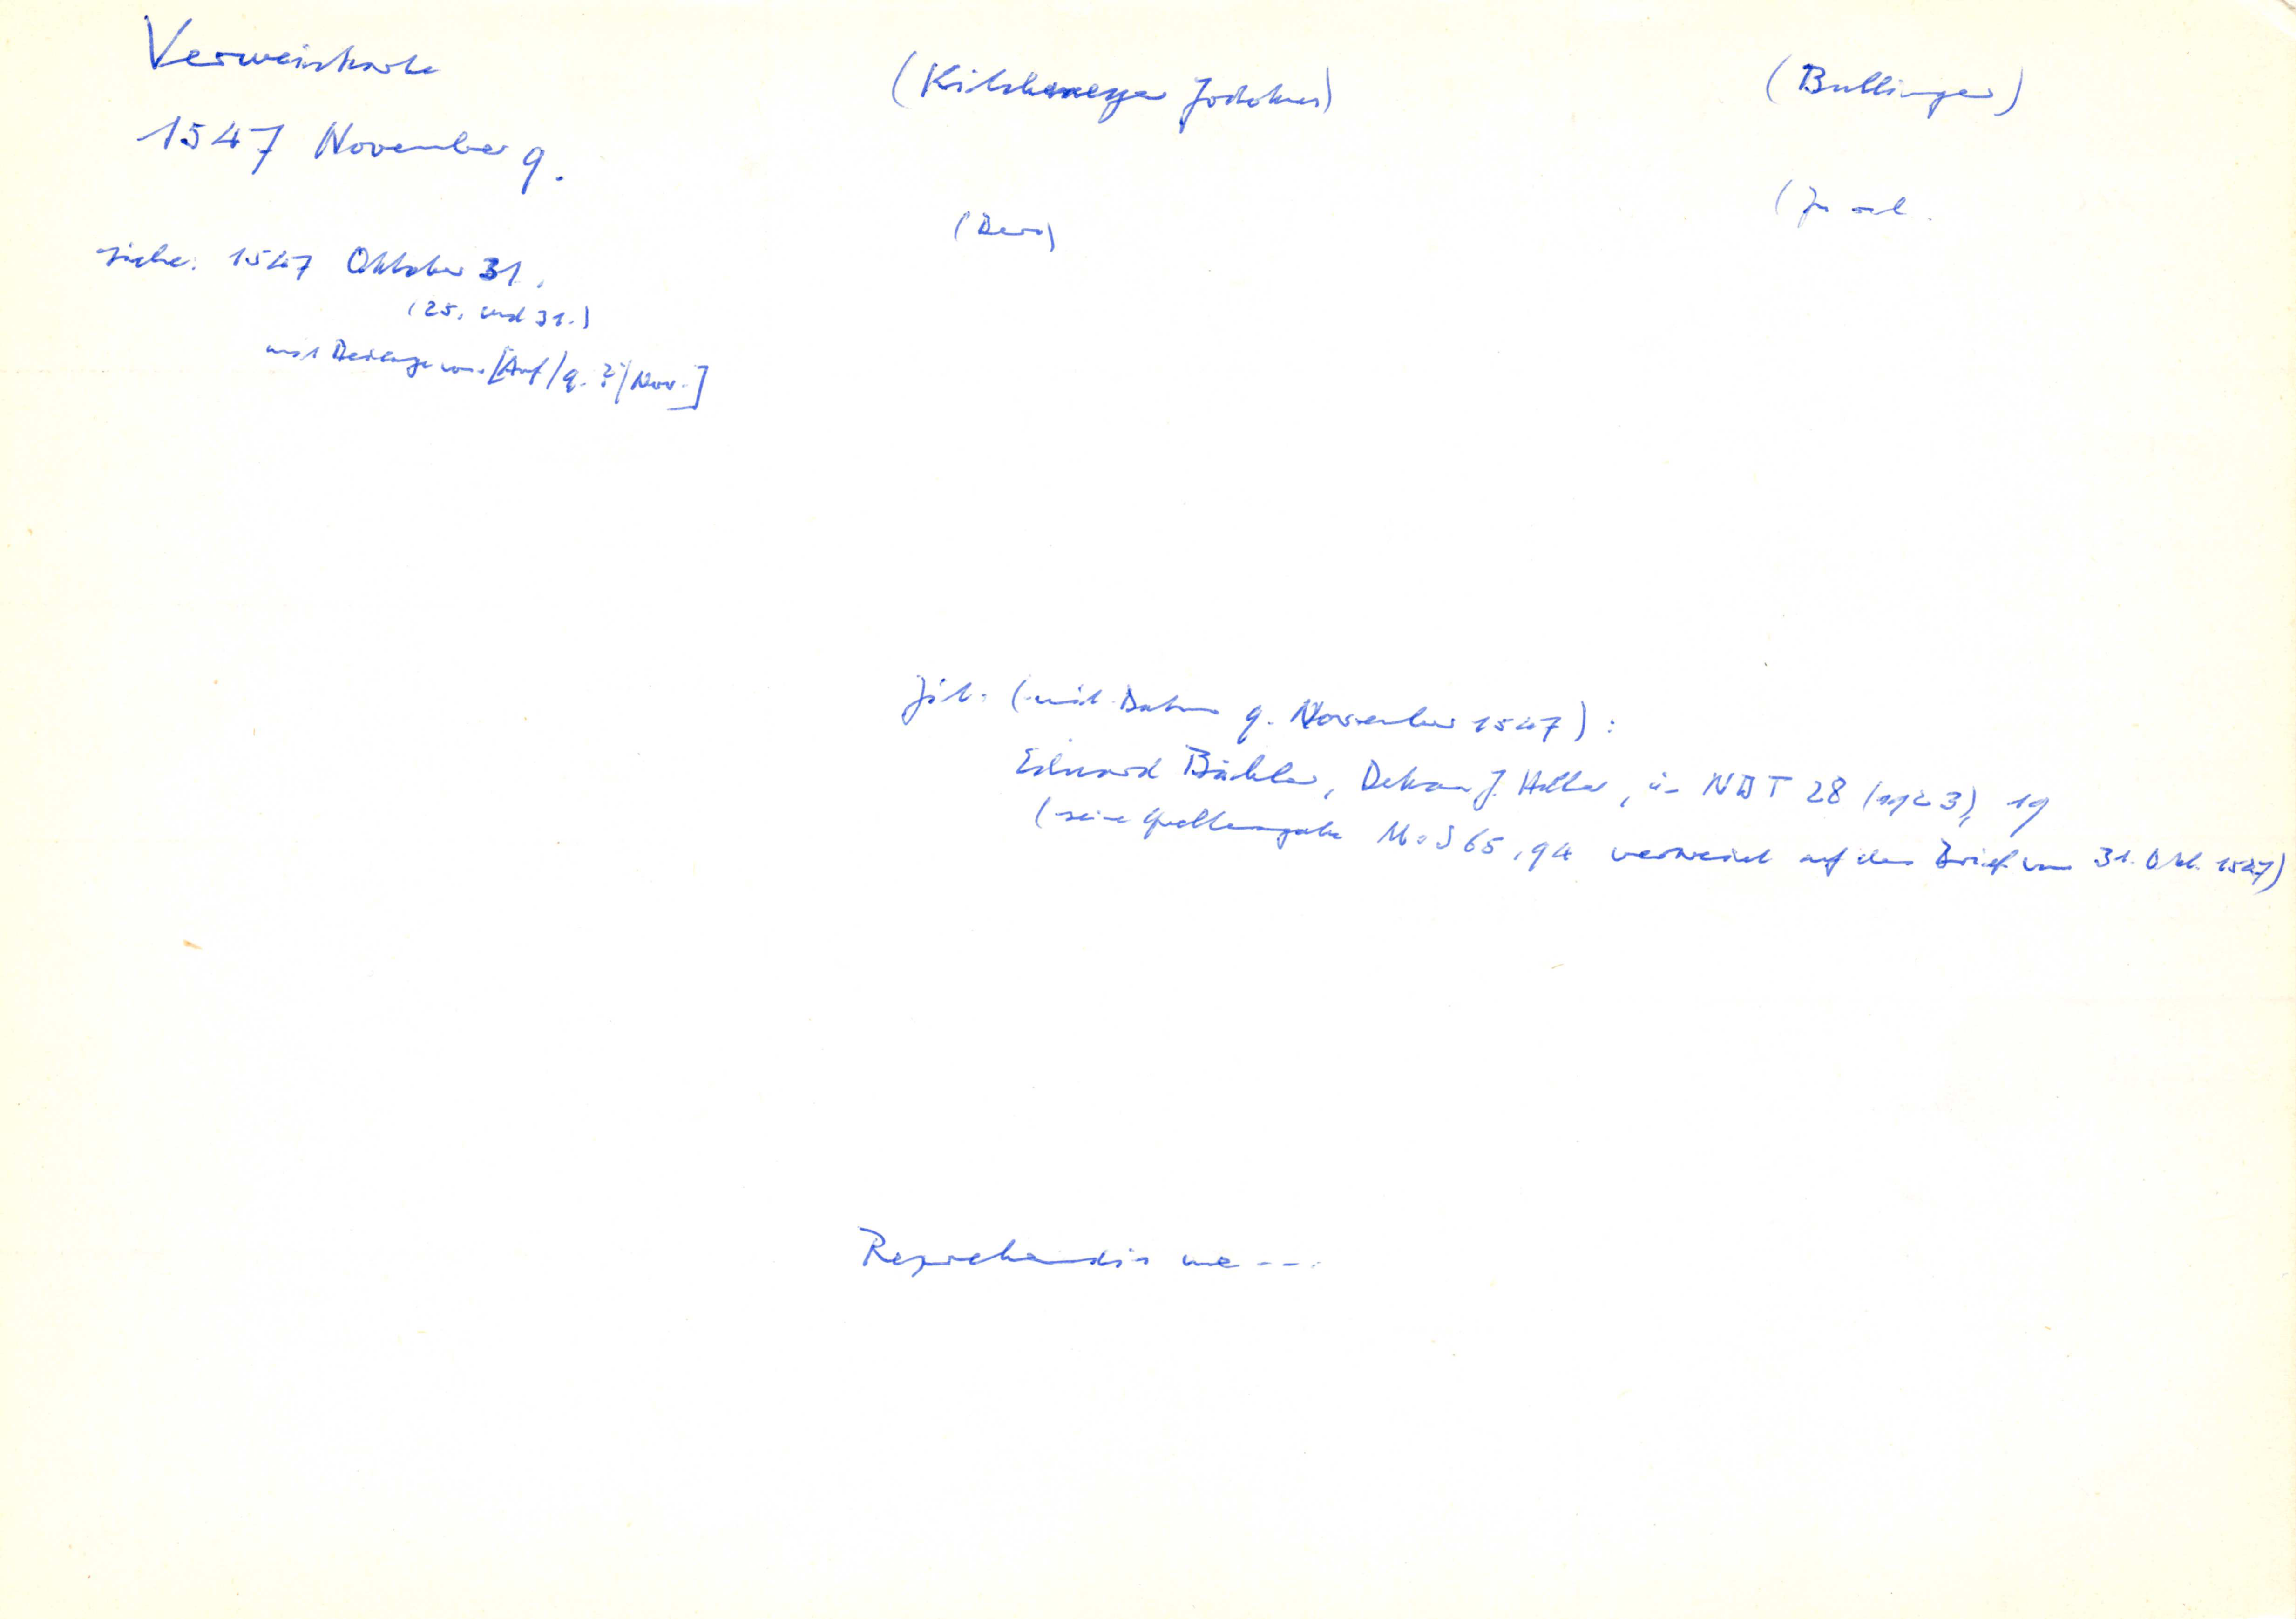 Verweiskarte
1547 November 9.
siehe: 1547 Oktober 31.
(25. und 31.)
mit Beilage von [Anf/9.?/Nov.]
(Kilchmeyer Jodokus)
(Bern)
(Bullinger)
(Zürich
Zit. (mit Datum 9. November 1547):
Eduard Bähler, Dekan J. Haller, in NBT 28 (1923), 19
(seine Quellenangabe Ms S 65, 94 verweist auf den Brief vom 31. Okt. 1547)
Reprehendis me ---